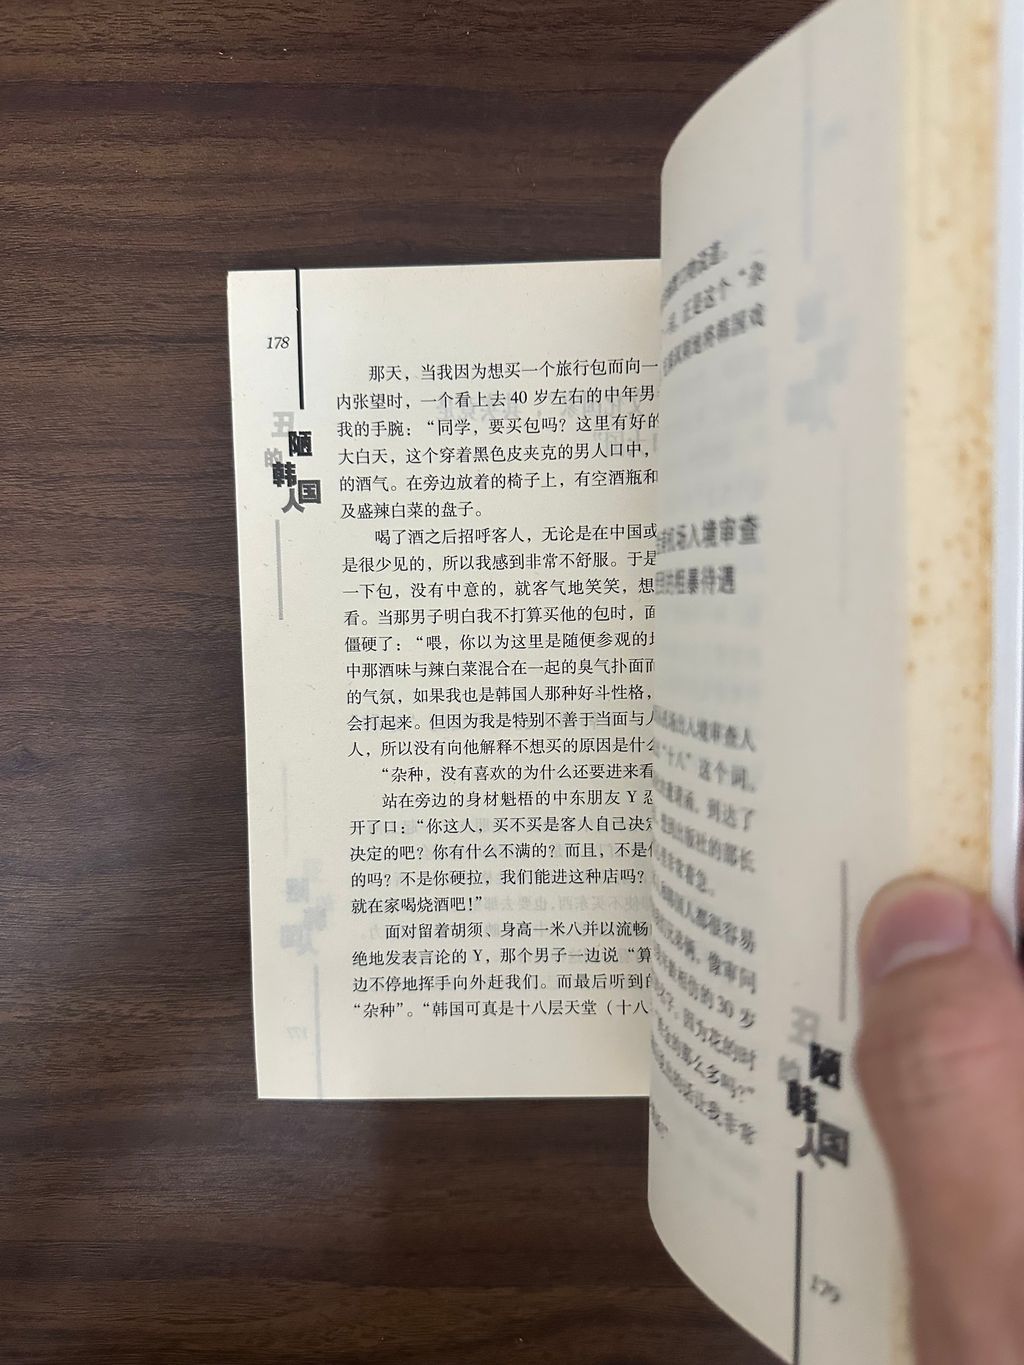 178
丑
陋
的
韩
国
人
那天，当我因为想买一个旅行包而向一
内张望时，一个看上去 40 岁左右的中年男
我的手腕：“同学，要买包吗？这里有好的
大白天，这个穿着黑色皮夹克的男人口中，
的酒气。在旁边放着的椅子上，有空酒瓶和
及盛辣白菜的盘子。
喝了酒之后招呼客人，无论是在中国或
是很少见的，所以我感到非常不舒服。于是
一下包，没有中意的，就客气地笑笑，想
看。当那男子明白我不打算买他的包时，面
僵硬了：“喂，你以为这里是随便参观的地
中那酒味与辣白菜混合在一起的臭气扑面而
的气氛，如果我也是韩国人那种好斗性格，
会打起来。但因为我是特别不善于当面与人
人，所以没有向他解释不想买的原因是什么
“杂种，没有喜欢的为什么还要进来看
站在旁边的身材魁梧的中东朋友 Y 忍
开了口：“你这人，买不买是客人自己决定
决定的吧？你有什么不满的？而且，不是你
的吗？不是你硬拉，我们能进这种店吗？
就在家喝烧酒吧！”
面对留着胡须、身高一米八并以流畅
绝地发表言论的 Y，那个男子一边说“算
边不停地挥手向外赶我们。而最后听到的
“杂种”。“韩国可真是十八层天堂（十八
正是这个“杂
地将韩国戏
机场入境审查
的粗暴待遇
场出入境审查人
“十八”这个词。
到达了
出版社的部长
非常着急。
国人都很容易
像审问
的 30 岁
因为花的时
的那么多吗？”
的话让我非常
丑
陋
的
韩
国
人
179